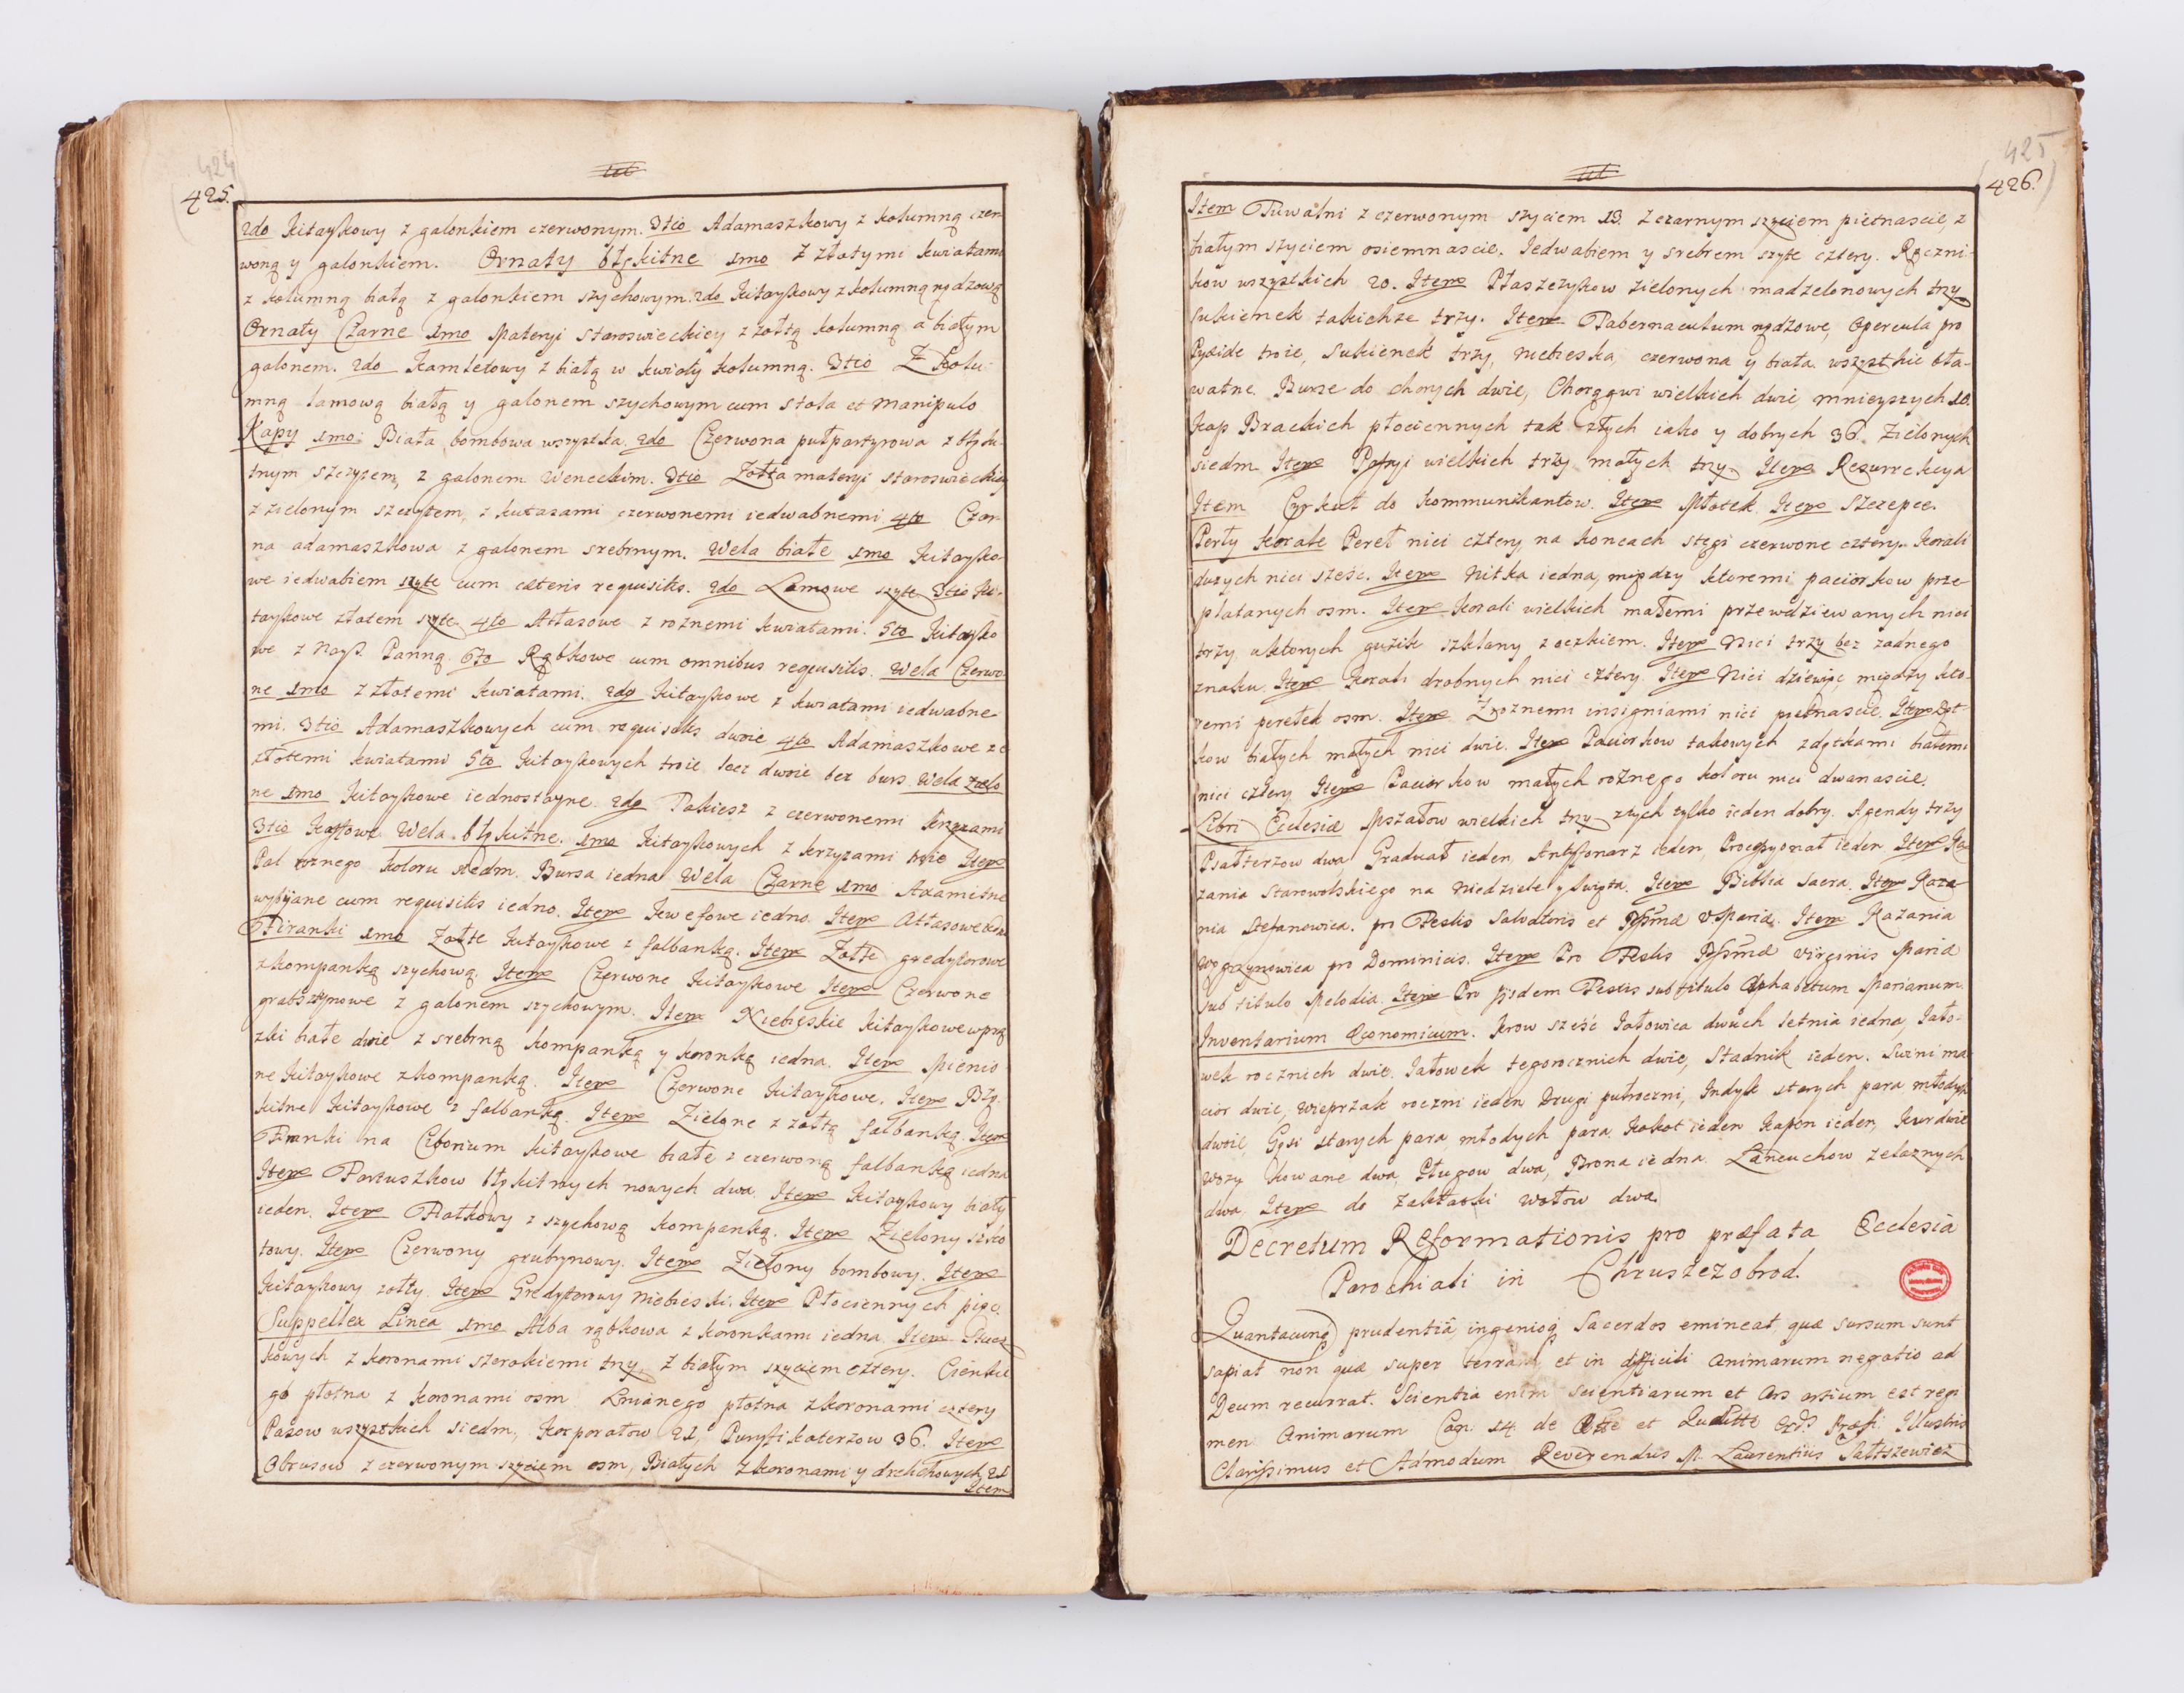 424
425.
2do Kitaykowy z galonkiem czerwonym. 3tio Adamaszkowy z kolumną czer
woną y galonkiem. Ornaty błękitne 1mo Z złotymi kwiatami
z kolumną białą z galonkiem szychowym. 2do Kitaykowy z kolumną rydzową
Ornaty Czarne 1mo Materyi staroswieckiey z zołtą kolumną a białym
galonem. 2do Kamletowy z białą w kwiaty kolumną. 3tio Z kolu
mną lamową białą y galonem szychowym cum stola et manipulo
Kapy 1mo: Biała bombowa wszystka. 2do Czerwona pułpartyrowa z błęki
tnym szczytem, z galonem Weneckim. 3tio Zołta materyi staroswieckiey
z zielonym szczytem, z kutasami czerwonemi iedwabnemi 4to Czar
na adamaszkowa z galonem srebrnym. Wela białe 1mo Kitayko
we iedwabiem szyte cum cæteris requisitis. 2do Lamowe szyte 3tio Ki-
taykowe złotem szyte 4to Atłasowe z roznemi kwiatami. 5to Kitayko
we z Nayś. Panną. 6to Rąbkowe cum omnibus requisitis. Wela Czerwo
ne 1mo z złotemi kwiatami. 2do Kitaykowe z kwiatami iedwabne
mi. 3tio Adamaszkowych cum requisitis dwoie 4to Adamaszkowe ze
złotemi kwiatami 5to Kitaykowych troie lecz dwoie bez burs. Wela Zielo
ne 1mo Kitaykowe iednostayne. 2do Takiesz z czerwonemi krzyzami
3tio Kaffowe Wela błękitne. 1mo Kitaykowych z krzyzami troie Item
Pal roznego koloru siedm. Bursa iedna Wela Czarne 1mo Axamitne
wybijane cum requisitis iedno. Item Kwefowe iedno. Item Atłasowe
Firanki 1mo Zołte Kitaykowe z falbanką. Item Zołte gredytorowe
z kompanką szychową. Item Czerwone Kitaykowe Item Czerwone
grabsztynowe z galonem szychowym. Item Niebieskie Kitaykowe
zki białe dwie z srebrną kompanką y koronką iedna. Item Mienio
ne Kitaykowe z kompanką. Item Czerwone Kitaykowe. Item Błę-
kitne Kitaykowe z falbanką. Item Zielone z zołtą falbanką. Item
Firanki na Ciborium kitaykowe białe z czerwoną falbanką iedna
Item Fartuszkow błękitnych nowych dwa. Item Kitaykowy biały
ieden. Item Fiatkowy z szychową kompanką. Item Zielony
towy. Item Czerwony grubrynowy. Item Zielony bombowy. Item
Kitaykowy zołty. Item Gredytorowy Niebieski. Item Płociennych pięc.
Suppellex Linea 1mo Alba rąbkowa z koronkami iedna Item
kowych z koronami szerokiemi trzy, z białym szyciem cztery. Cienkie
go płotna z koronami osm Lnianego płotna z koronami cztery
Pasow wszystkich siedm, Korporałow 21, Puryfikaterzow 36. Item
Obrusow z czerwonym szyciem osm, Białych z koronami y drelichowych 21
Item
425
426.
Item Tuwalni z czerwonym szyciem 13. Z czarnym szyciem pietnascie, z
białym szyciem osiemnascie. Iedwabiem y srebrem szyte cztery. Ręczni-
kow wszystkich 20. Item Płaszczykow zielonych madzelonowych trzy
sukienek takichze trzy. Item Tabernaculum rydzowe, Opercula pro
Pyxide troie, Sukienek trzy, niebieska, czerwona y biała wszystkie bła-
watne. Bursze do chorych dwie, Chorągwi wielkich dwie mnieyszych 10.
Kap Brackich płociennych tak złych iako y dobrych 36. Zielonych
siedm. Item Passyi wielkich trzy małych trzy Item Rezurrekcya
Item Cyrkuł do Kommunikantow. Item Młotek. Item Szczepce.
Perły Korale Pereł nici cztery, na koncach stęgi czerwone cztery. Korali
duzych nici sześć. Item Nitka iedna, między ktoremi paciorkow prze
platanych osm. Item Korali wielkich małemi przewdziewanych nici
trzy u ktorych guzik szklany z oczkiem. Item Nici trzy bez zadnego
znaku. Item Korali drobnych nici cztery. Item Nici dziewięć między kto-
remi perełek osm. Item Z roznemi insigniami nici pietnascie. Item
kow białych małych nici dwie. Item Paciorkow takowych z dętkami białemi
nici cztery Item Paciorkow małych roznego koloru nici dwanascie.
Libri Ecclesiæ Mszałow wielkich trzy złych tylko ieden dobry. Agendy trzy
Psałterzow dwa Graduał ieden, Antyfonarz ieden, Processyonał ieden Item Ka
zania Starowolskiego na Niedziele y Święta. Item Biblia Sacra. Item Kaza
nia Stefanowica. pro Festis Salvatoris et Bssmæ V. Mariæ. Item Kazania
Węgrzynowica pro Dominicis. Item Pro Festis Bssmæ Virginis Mariæ
sub titulo Melodia. Item Pro iisdem Festis sub titulo Alphabetum Marianum.
Inventarium Œconomicum. Krow sześć Iałowica dwuch letnia iedna, Iało-
wek rocznich dwie. Iałowek tegorocznich dwie, Stadnik ieden. Swini ma
cior dwie, Wieprzak roczni ieden Drugi pułroczni, Indyk starych para młodych
dwoie, Gęsi starych para, młodych para Kokot ieden Kapon ieden, Kur dwie
Wozy kowane dwa, Pługow dwa, Brona iedna Lancuchow zelaznych
dwa Item do Zakładki wołow dwa.
Decretum Reformationis pro præfata Ecclesia
Parochiali in Chruszczobrod.
Quantacunq prudentiâ, ingenioq Sacerdos emineat, quæ sursum sunt
sapiat non quæ super terram, et in difficili animarum negotio ad
Deum recurrat. Scientia enim scientiarum et Ars artium est regi
men Animarum Can. 14 de et Illustris
Clarissimus et Admodum Reverendus M. Laurentius Sałtszewicz